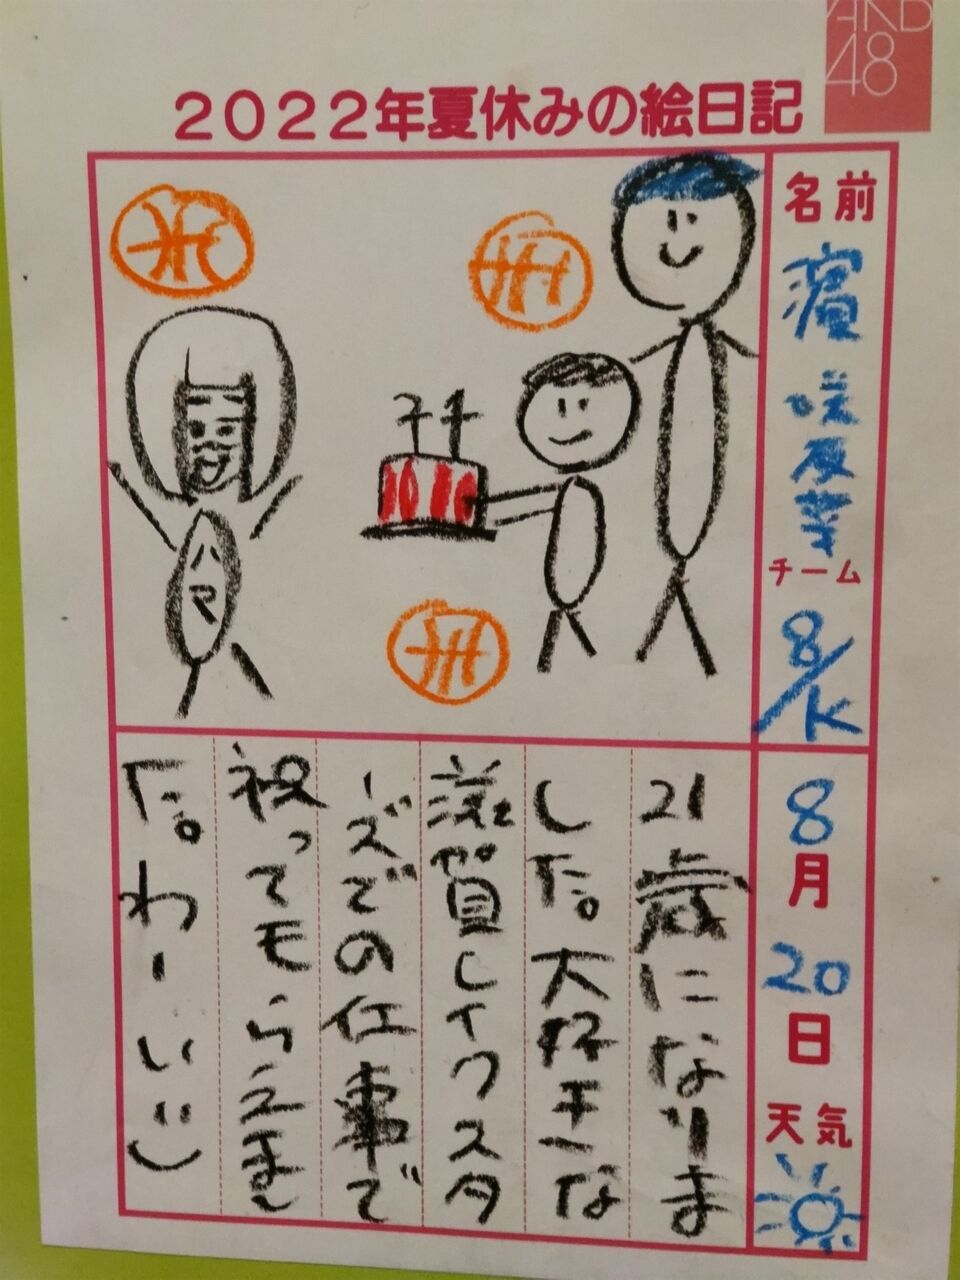 AKB
48
2022年夏休みの絵日記
名前
濵 咲友菜
チーム
8/K
8月20日
天気
ハマ
21
21歳になりま
した。大好きな
滋賀レイクスタ
ーズでの仕事で
祝ってもらえまし
た。わーいい)